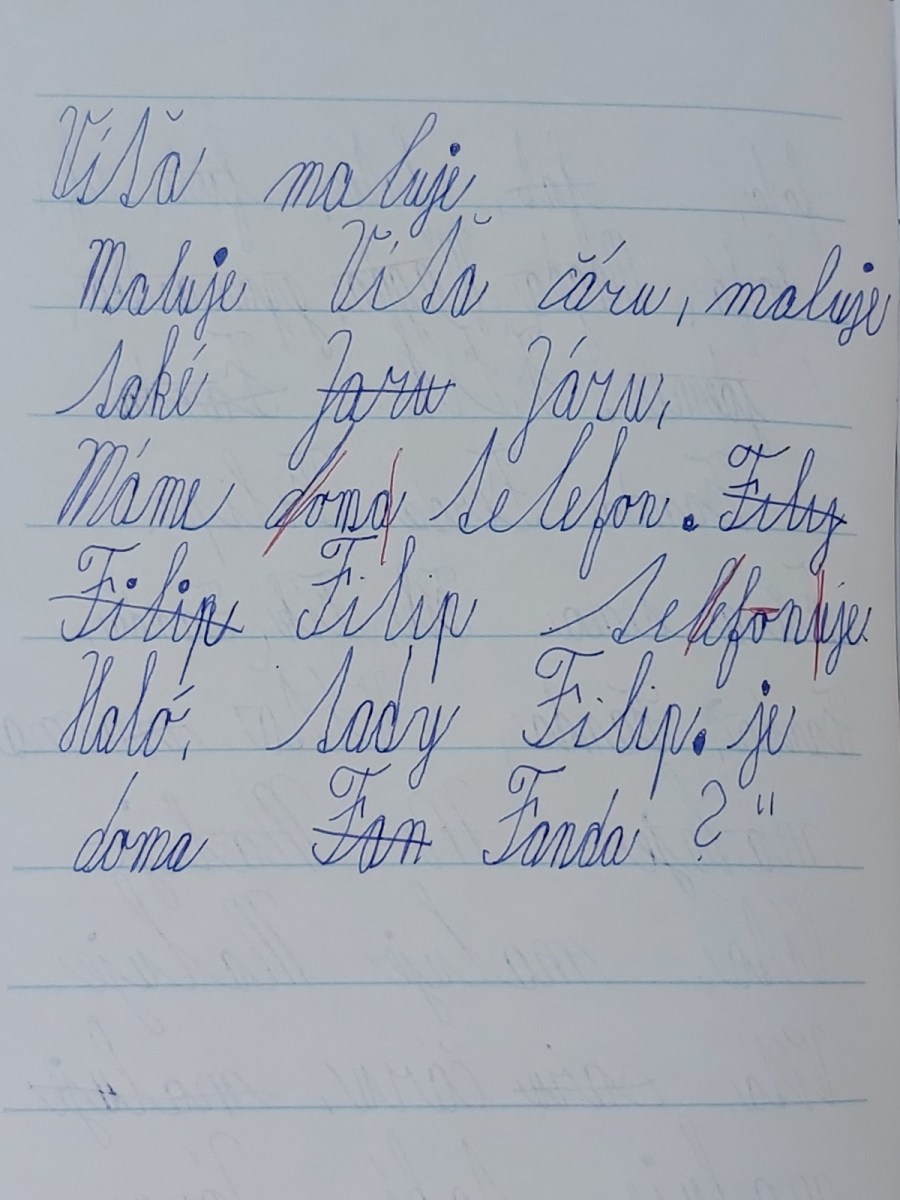 Víťa maluje
Maluje Víťa čáru, maluje
také Jaru Járu,
Máme doma telefon. Fily
Filip Filip telefonuje.
Haló, tady Filip. je
doma Fan Fanda ?"